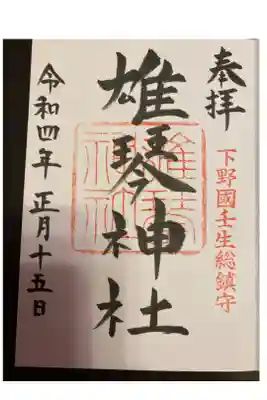 奉拝
下野國壬生総鎮守
雄琴神社
令和四年 正月十五日